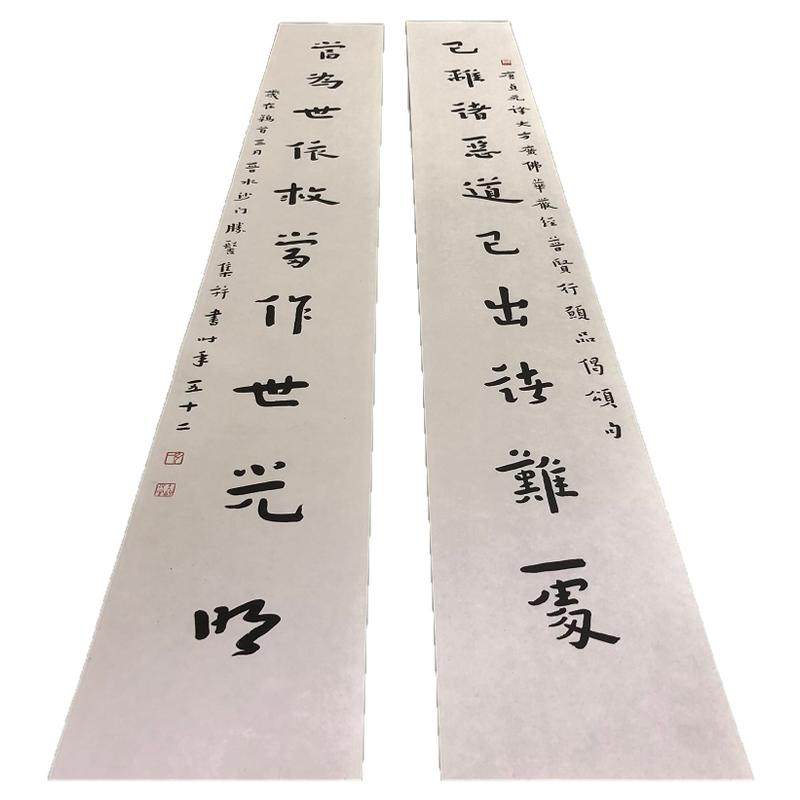 唐貞元譯大方廣佛華嚴經普賢行願品偈頌句
已離諸惡道已出諸難處
當為世依救當作世光明
歲在鶉首三月晉水沙門勝髻集并書時年五十二